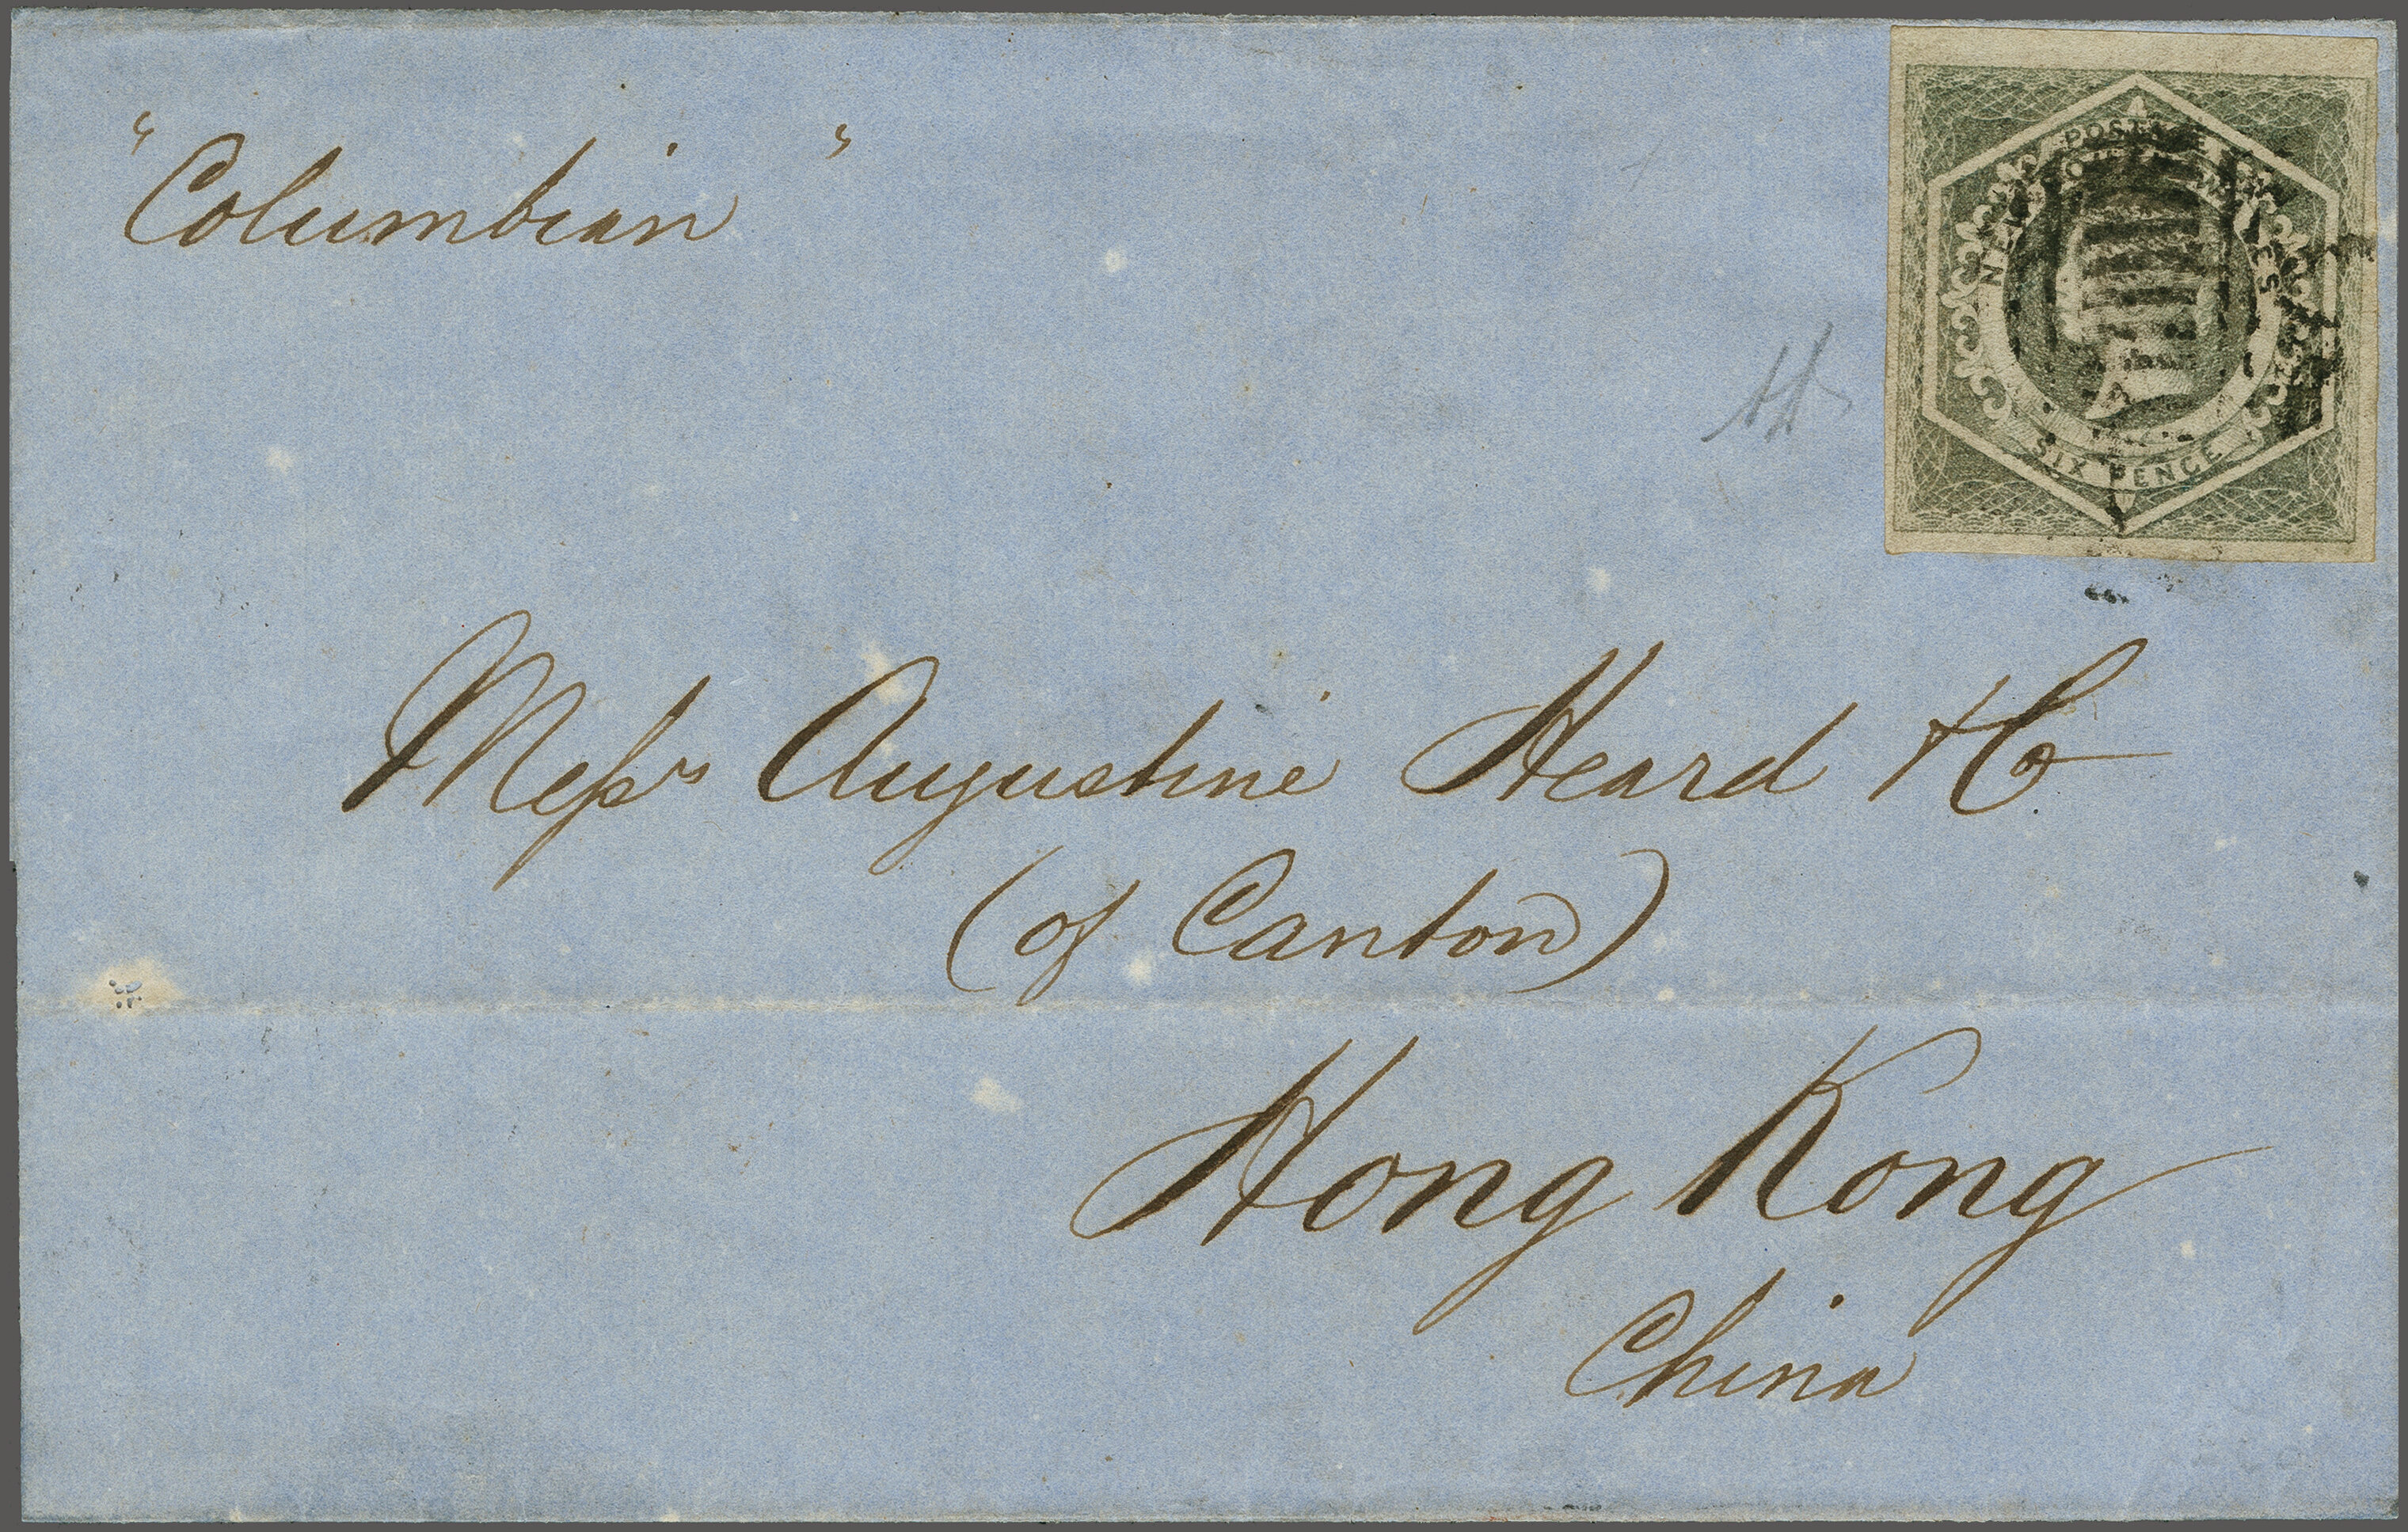 "Columbian"
POSTAGE
NEW SOUTH WALES
SIX PENCE
Messrs Augustine Heard & Co
(of Canton)
Hong Kong
China